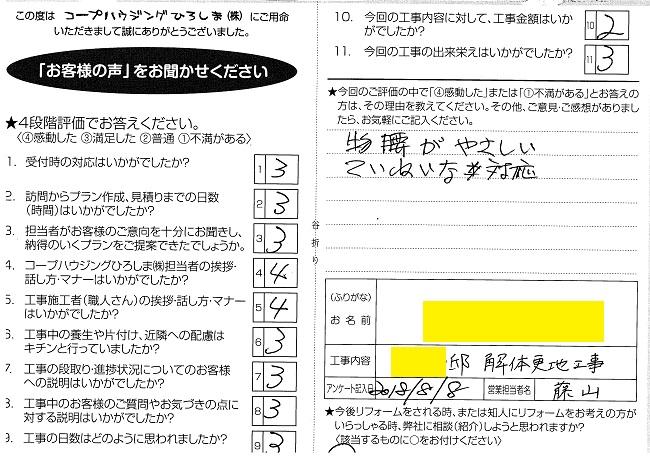 この度は コープハウジングひろしま(株) にご用命
いただきまして誠にありがとうございました。
「お客様の声」をお聞かせください
★4段階評価でお答えください。
〈④感動した ③満足した ②普通 ①不満がある〉
1. 受付時の対応はいかがでしたか?
1 3
2. 訪問からプラン作成、見積りまでの日数
(時間)はいかがでしたか?
2 3
3. 担当者がお客様のご意向を十分にお聞きし、
納得のいくプランをご提案できたでしょうか。
3 3
4. コープハウジングひろしま㈱担当者の挨拶・
話し方・マナーはいかがでしたか?
4 4
5. 工事施工者(職人さん)の挨拶・話し方・マナー
はいかがでしたか?
5 4
6. 工事中の養生や片付け、近隣への配慮は
キチンと行っていましたか?
6 3
7. 工事の段取り・進捗状況についてのお客様
への説明はいかがでしたか?
7 3
8. 工事中のお客様のご質問やお気づきの点に
対する説明はいかがでしたか?
8 3
9. 工事の日数はどのように思われましたか?
9 3
谷折り
10. 今回の工事内容に対して、工事金額はいか
がでしたか?
10 2
11. 今回の工事の出来栄えはいかがでしたか?
11 3
★今回のご評価の中で「④感動した」または「①不満がある」とお答え
の方は、その理由を教えてください。その他、ご意見・ご感想がありまし
たら、お気軽にご記入ください。
物腰がやさしい
ていねいな対応
(ふりがな)
お名前
工事内容
邸 解体更地工事
アンケート記入日 2018/8/8 営業担当者名 藤山
★今後リフォームをされる時、または知人にリフォームをお考えの方が
いらっしゃる時、弊社に相談(紹介)しようと思われますか?
〈該当するものに○をお付けください〉